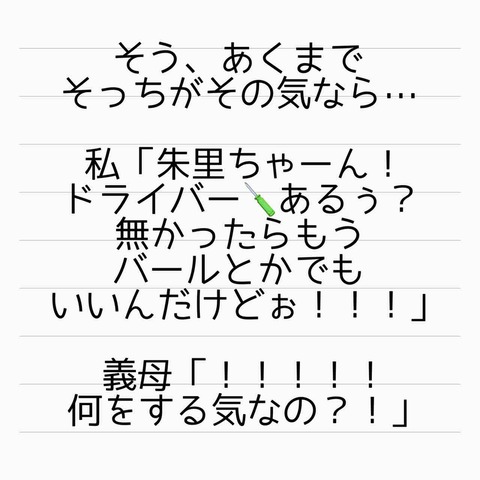 そう、あくまで
そっちがその気なら…
私「朱里ちゃーん！
ドライバー🪛あるぅ？
無かったらもう
バールとかでも
いいんだけどぉ！！！」
義母「！！！！！
何をする気なの？！」